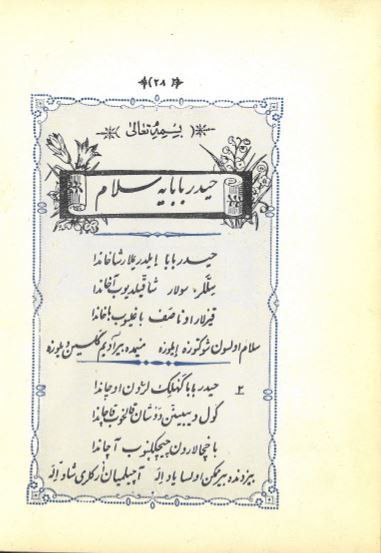 (۲۸)
بسمه تعالی
حیدربابایه سلام
حیدربابا ایلدیریملار شاخاندا
سللر، سولار شاقّیلدیوب آخاندا
قیزلار اوناصف باغلیوب باخاندا
سلام اولسون شوکتوزه ایلوزه منیمده بیر آدیم گلسین دیلوزه
۲ حیدربابا کهلیک لرون اوچاندا
کول دیبینن دوشان قالخوب قاچاندا
باخچالارون چیچکلنوب آچاندا
بیزدنده بیر ممکن اولسا یاد ایله آچیلمیان اُرکلری شاد ایله